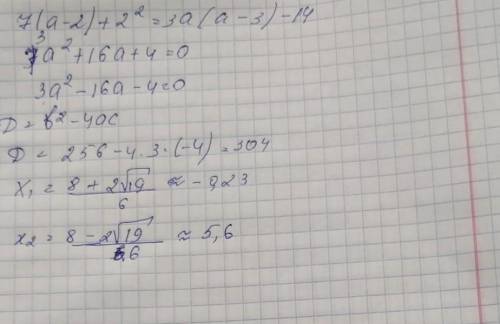 7(a-2)+2²=3a(a-3)-14
3a²+16a+4=0
3a²-16a-4=0
D=b²-4ac
D= 256-4·3·(-4)=304
x₁= (8+2√19)/6 ≈ -0,23
x₂= (8-2√19)/6 ≈ 5,6